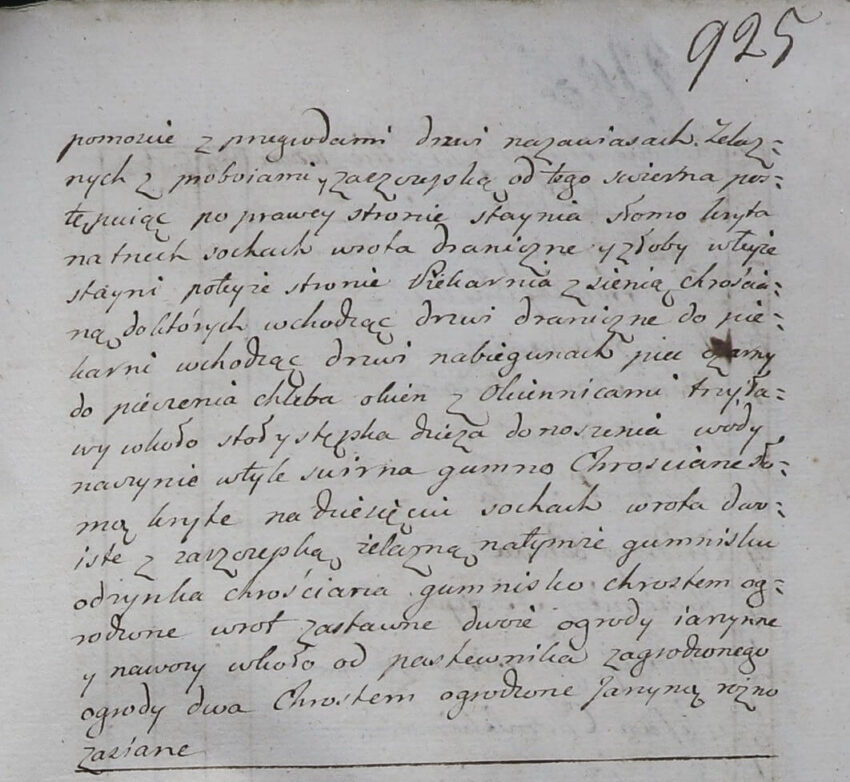 925
pomoście z przegrodami drzwi nazawiasach Żelaz=
nych z proboiami y zaszczepską od tego swierna pos=
tępuiąc po prawey stronie staynia słomo kryta
na trzech sochach wrota draniczne y złoby wteyże
stayni poteyże stronie Piekarnia z sienią chrościa=
ną doktórych wchodząc drzwi draniczne do pie=
karni wchodząc drzwi nabiegunach piec czarny
do pieczenia chleba okien z Okiennicami trzy ła=
wy wkoło stoły stępka dzieza do noszenia wody
naczynie wtyle swirna gumno Chrościane sło=
mą kryte na dziesięciu sochach wrota dwo=
iste z zaszczepską żelazną natymże gumnisku
odrynka chrościana gumnisko chrostem og=
rodzone wrot zastawne dwoie ogrody iarzynne
y nawozy wkoło od pastewnika zagrodzonego
ogrody dwa Chrostem ogrodzone Jarzyną rożno
zasiane